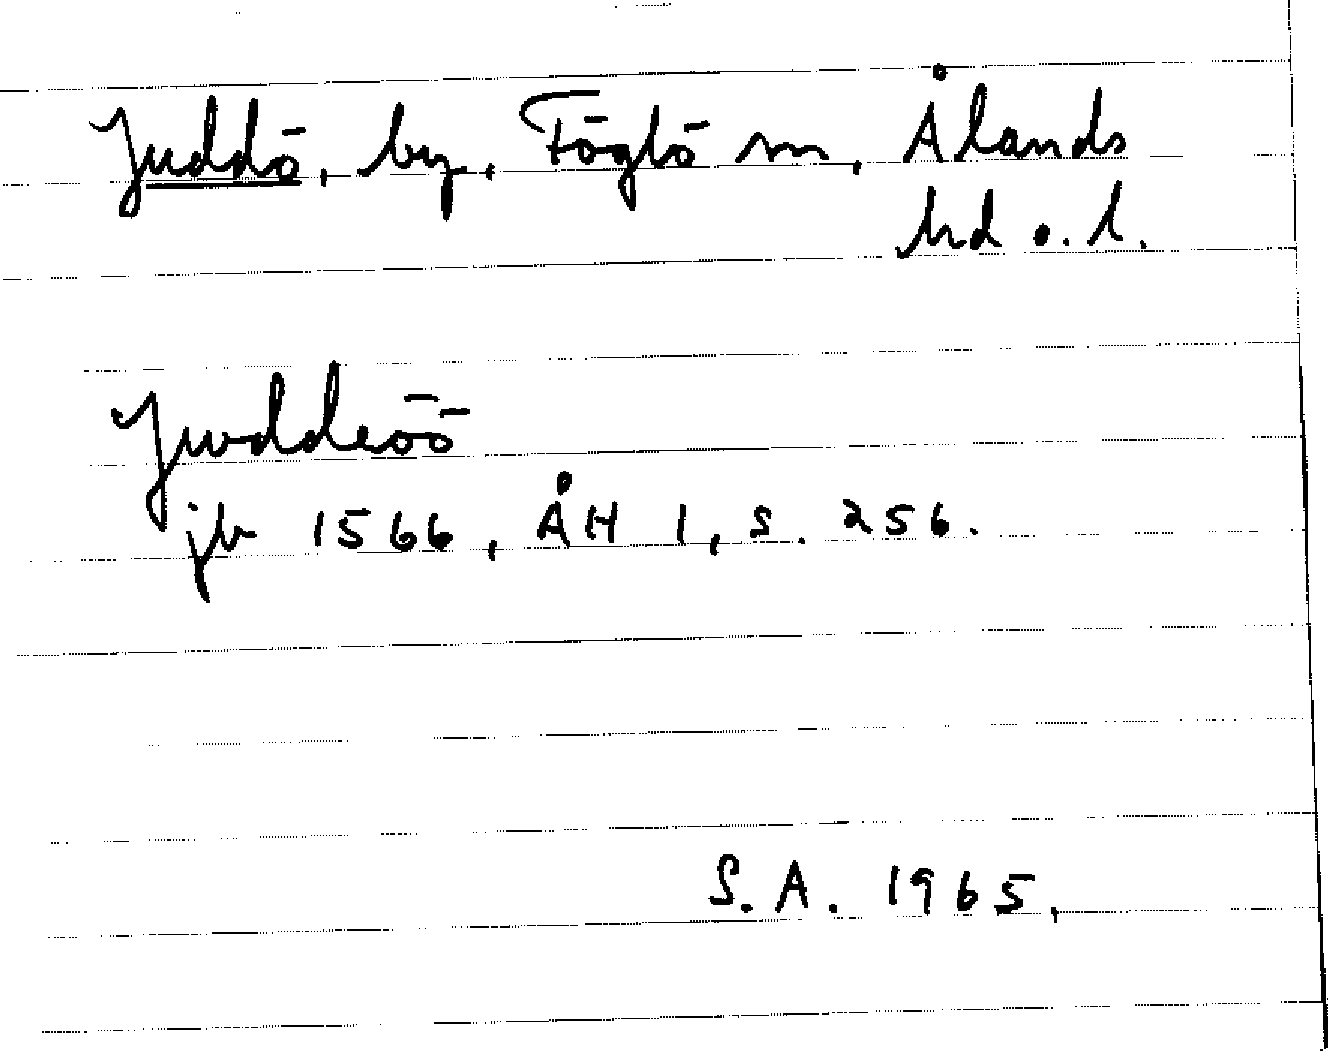 Juddö, by, Föglö sn, Ålands
hd o. l.
Jwddeöö
jb 1566, ÅH 1, s. 256.
S.A. 1965.